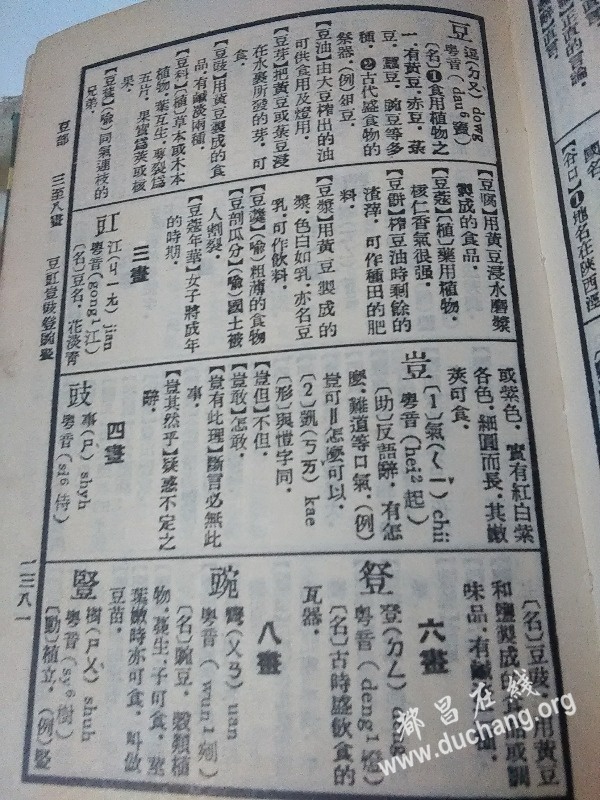 豆
逗(ㄉㄡ) dow
粵音(dau6竇)
〔名〕❶食用植物之
一有黃豆.赤豆.菉
豆.蠶豆.豌豆等多
種.❷古代盛食物的
祭器.(例)俎豆.
【豆油】由大豆榨出的油
可供食用及燈用.
【豆芽】把黃豆或菉豆浸
在水裏所發的芽.可
食.
【豆豉】用黃豆製成的食
品.有鹹淡兩種.
【豆科】〔植〕草本或木本
植物.葉互生.萼裂爲
五片.果實爲莢或核
果.
【豆萁】(喻)同氣連枝的
兄弟.
【豆腐】用黃豆浸水磨漿
製成的食品.
【豆蔻】〔植〕藥用植物.
核仁香氣很强.
【豆餅】榨豆油時剩餘的
渣滓.可作種田的肥
料.
【豆漿】用黃豆製成的
漿.色白如乳.亦名豆
乳.可作飲料.
【豆羹】(喻)粗薄的食物
【豆剖瓜分】(喻)國土被
人割裂.
【豆蔻年華】女子將成年
的時期.
三畫
豇
江(ㄐㄧㄤ) jian
粵音(gong1江)
〔名〕豆名.花淡青
或紫色.實有紅白紫
各色.細圓而長.其嫩
莢可食.
豈
〔1〕氣(ㄑㄧˇ) chii
粵音(hei2起)
〔助〕反語辭.有怎
麽.難道等口氣.(例)
豈可=怎麽可以.
〔2〕凱(ㄎㄞ) kae
〔形〕與愷字同.
【豈但】不但.
【豈敢】怎敢.
【豈有此理】斷言必無此
事.
【豈其然乎】疑惑不定之
辭.
四畫
豉
事(ㄕ) shyh
粵音(si6侍)
〔名〕豆豉.用黃豆
和鹽製成的食品或調
味品.有鹹
六畫
登(ㄉㄥ)
粵音(deng1燈)
〔名〕古時盛飲食的
瓦器.
八畫
豌
彎(ㄨㄢ) uan
粵音(wun1
〔名〕豌豆.穀類植
物.蔓生.子可食.莖
葉嫩時亦可食.叫做
豆苗.
豎
樹(ㄕㄨ) shuh
粵音(sy6樹)
〔動〕植立.(例)豎
豆部 三至八畫
一三八一
正直的言論.
【谷口】❶地名在陝西涇
都昌在线
www.duchang.org